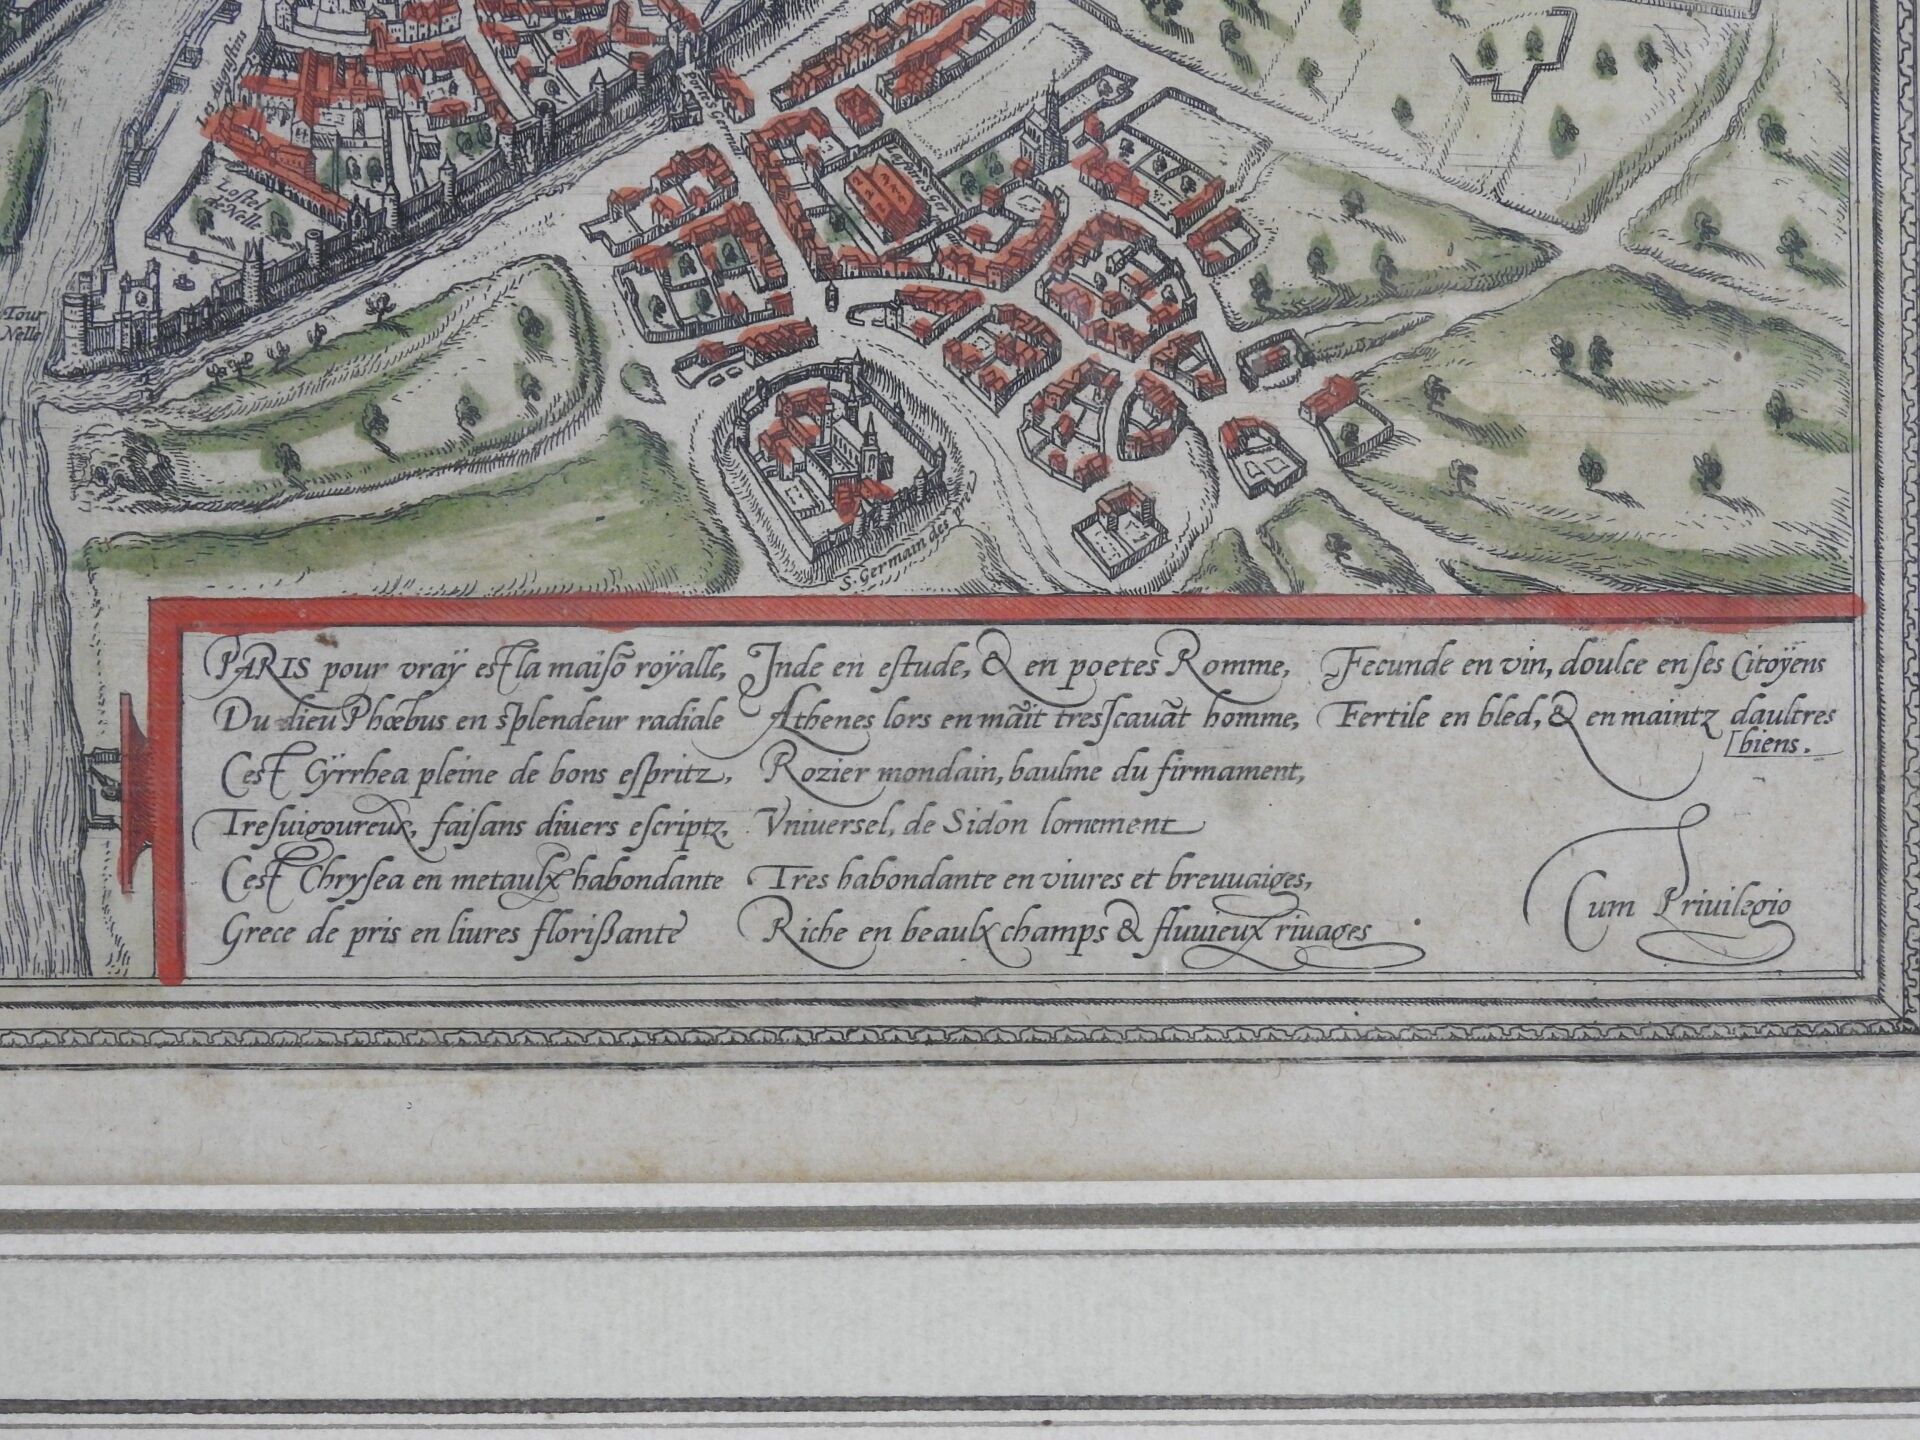 Les Augustins
Porte S. Germai.
Lostel
de Nelle
Tour
Nelle
S. Germain des prez
PARIS pour vraÿ est la maisõ roÿalle,
Du dieu Phœbus en splendeur radiale
Cest Cÿrrhea pleine de bons espritz,
Tresuigoureux, faisans diuers escriptz,
Cest Chrysea en metaulx habondante
Grece de pris en liures florißante
Inde en estude, & en poetes Romme,
Athenes lors en maĩt tresscauãt homme,
Rozier mondain, baulme du firmament,
Vniuersel, de Sidon lornement
Tres habondante en viures et breuuaiges,
Riche en beaulx champs & fluuieux riuages
Fecunde en vin, doulce en ses Citoÿens
Fertile en bled, & en maintz daultres
[biens.
Cum Priuilegio